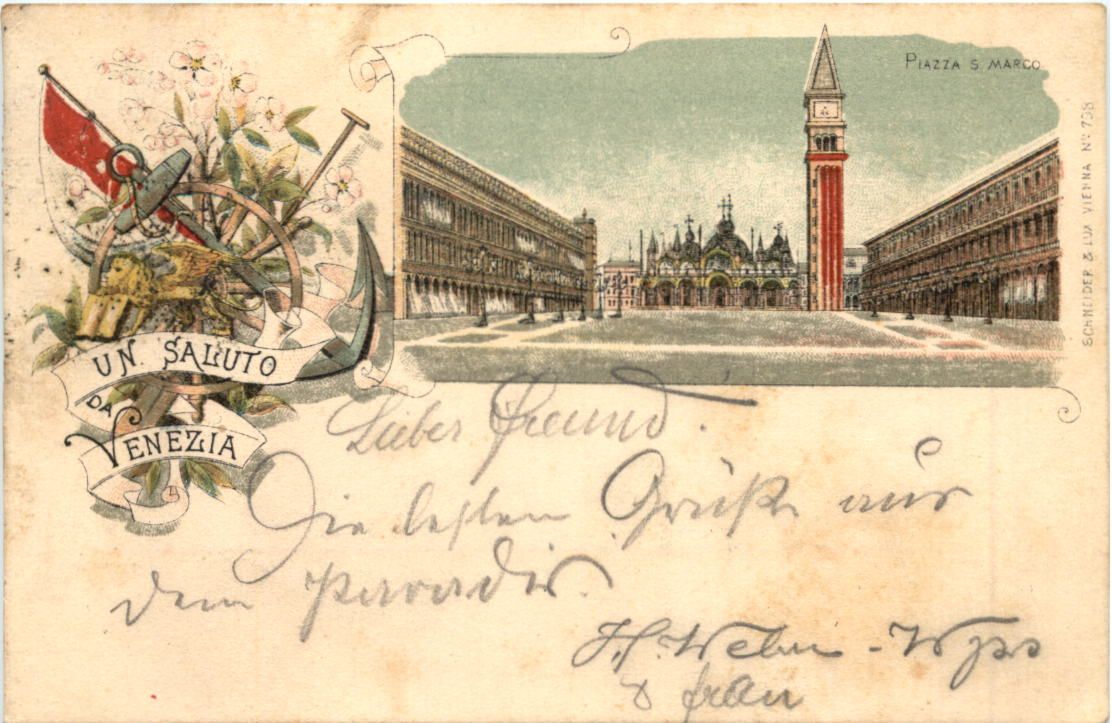 PIAZZA S. MARCO
SCHNEIDER & LUX VIENNA No 738
UN SALUTO
DA
VENEZIA
Lieber Freund!
Die besten Grüße aus
dem Paradis.
H. Weber-
& Frau